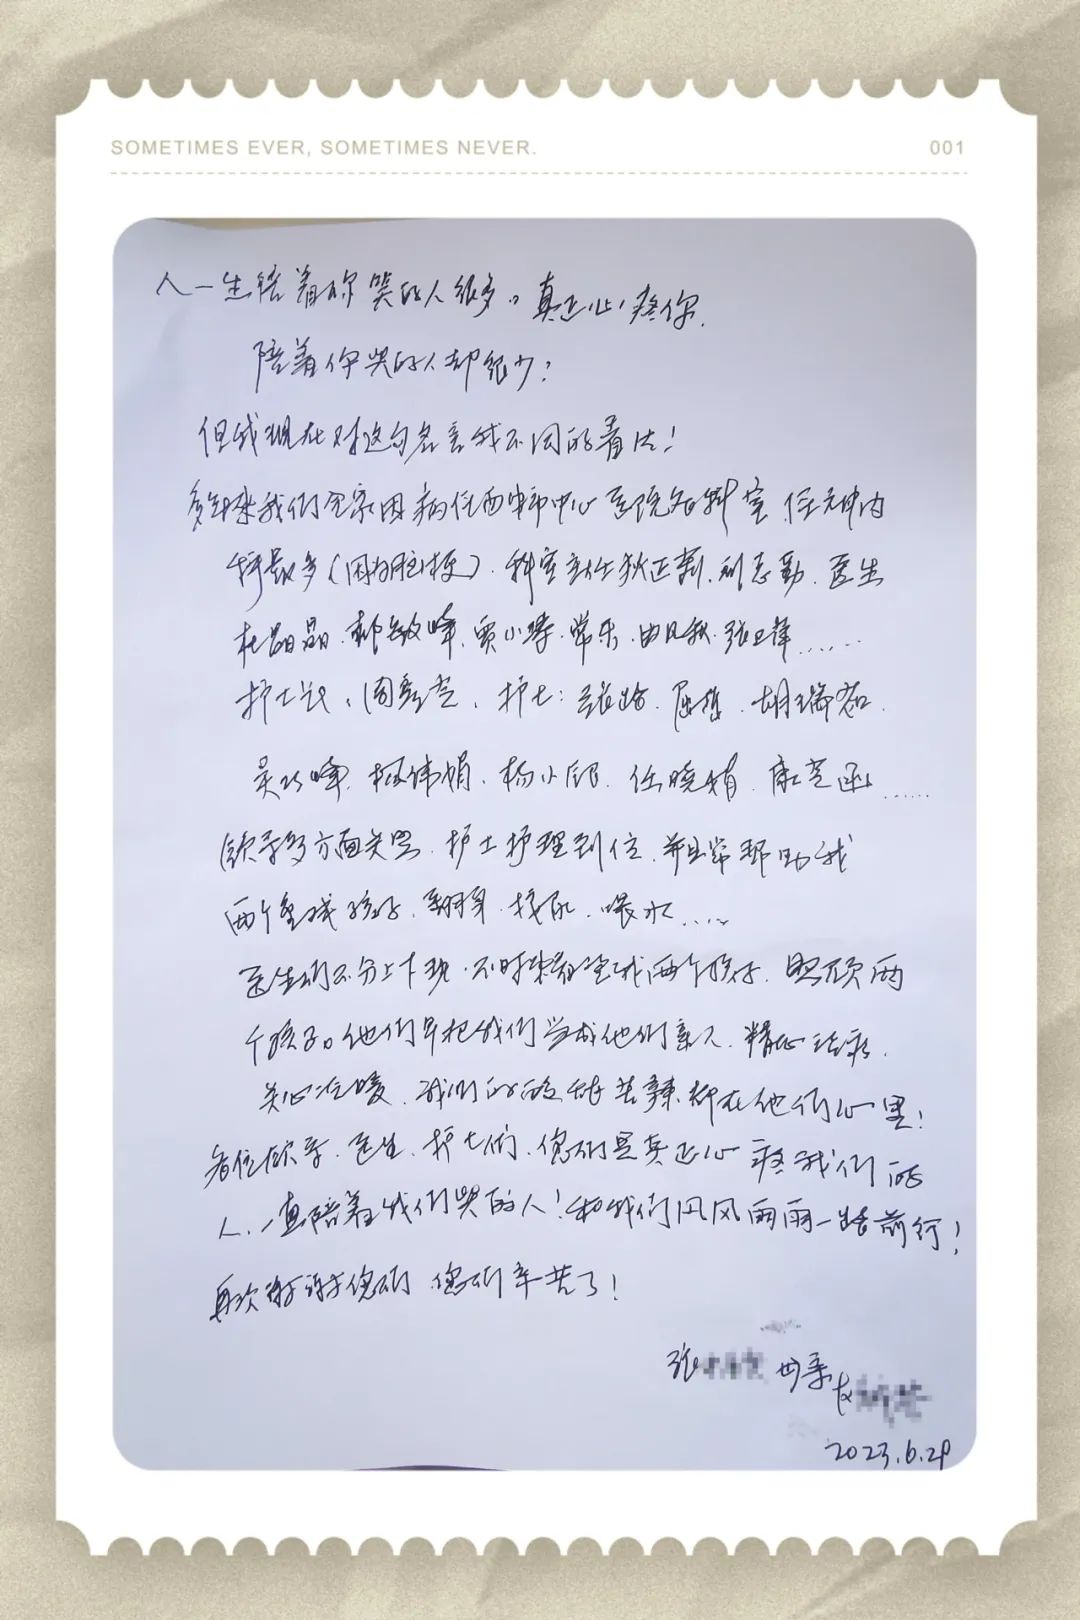 SOMETIMES EVER, SOMETIMES NEVER.
001
人一生陪着你笑的人很多。真正心疼你
陪着你哭的人却很少?
但我现在对这句名言我不同的看法!
多年来我们全家因病住西安市中心医院各科室 住神内
科最多(因为脑梗)、科室主任狄正鹏、刘志勤、医生
杜晶晶、郝敏峰、贾小涛、常乐、曲见秋、张卫锋……
护士长、周彦芝、护士:张路、屈莎、胡瑞茹
吴巧峰、杨伟娟、杨小邱、任晓娟、康芝函……
领导多方面关照、护士护理到位、并且常帮助我
两个重残孩子、翻身、接尿、喂水……
医生们不分上下班、不时来看望我两个孩子、照顾两
个孩子。他们早把我们当成他们亲人、精心治疗、
关心冷暖、我们的酸甜苦辣都在他们心里!
各位领导、医生、护士们、您们是真正心疼我们的
人、一直陪着我们哭的人!和我们风风雨雨一路前行!
再次谢谢您们 您们辛苦了!
张 母亲
2023.6.29